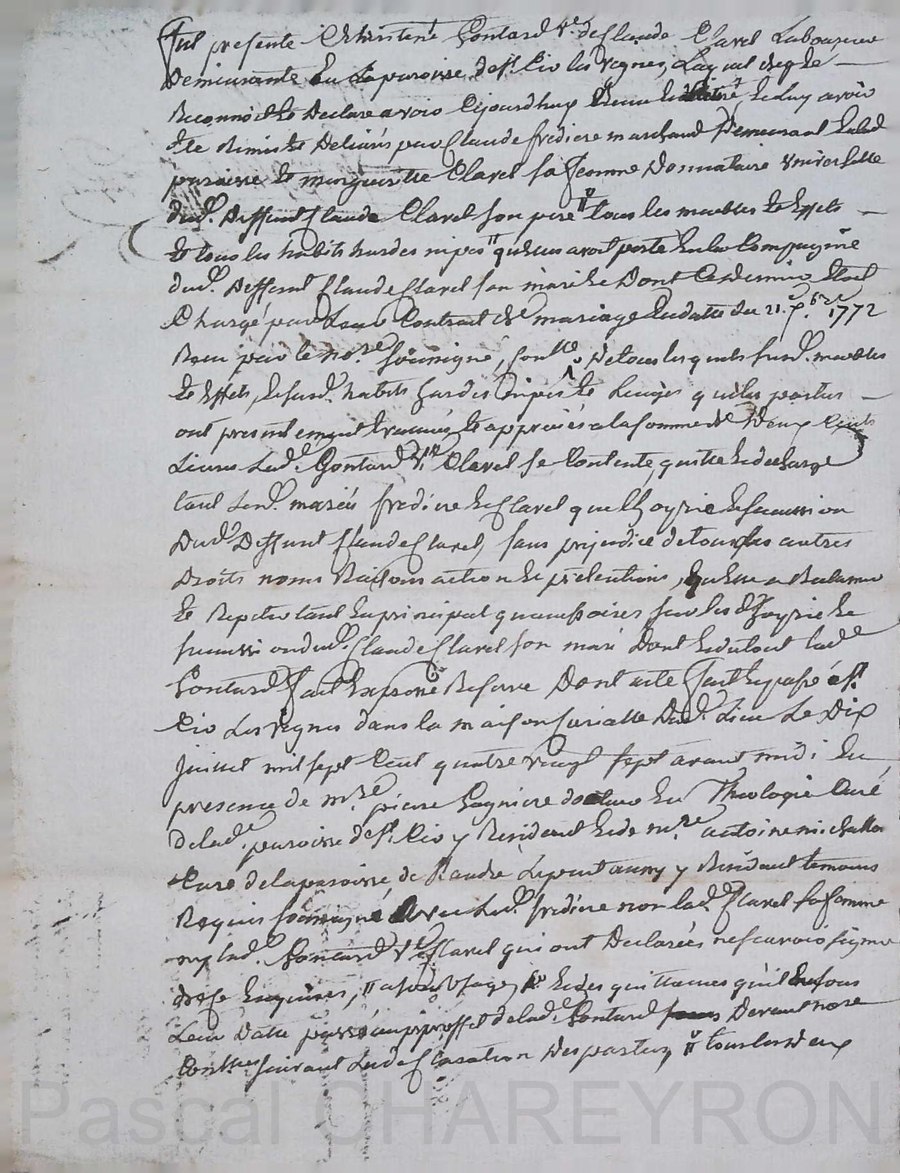 fut presente Christine Gontard v.e de Claude Clavel Laboureur
Demeurante En La paroisse de St. Cio les vignes, Laquelle
Reconnoit Et Declare avoir Cejourdhuy Et luy avoir
Ete Remis Et Delivrés par Claude fredière marchand Demeurant En lad
paroisse Et marguerite Clavel sa femme Donnataire universelle
dud. Deffunt Claude Clavel son pere tous les meubles Et Effets
Et tous les habits hardes nipes qu'elle avoit porté En la Compagnie
dud. Deffunt Claude Clavel son mari Et Dont Ce dernier Etoit
Chargé par Leur Contrat de mariage En datte du 21. 1772
Recu par le no.re soussigné, De tous lesquels susd. meubles
Et Effets, Et susd. habits hardes nipes Et Linges que les parties
ont presentement Evalués Et appreciés a la somme de Deux Cents
Livres Lad.e Gontard v.e Clavel se Contente, quitte Et decharge
tant Lesd. mariés fredière Et Clavel que l'hoyrie Et succession
Dud. Deffunt Claude Clavel, sans prejudice de tous ses autres
Droits noms Raisons action Et pretentions, qu'elle a Reclamer
Et Repeter tant En principal qu'accessoires sur les d. hoyrie Et
succession dud. Claude Clavel son mari Dont Et du tout lad.e
Gontard fait Expresse Reserve Dont acte fait Et passé a St.
Cio Les vignes dans la maison Curialle Dud. Lieu Le Dix
Juillet mil sept Cent quatre vingt sept avant midi En
presence de m.re pierre Gagniere docteur En Theologie Curé
de lad.e paroisse de St. Cio y Residant Et de m.re antoine
Curé de la paroisse de y Residant temoins
Requis soussignés avec Led. fredière non lad. Clavel sa femme
ny lad. Gontard v.e Clavel qui ont Declarées ne scavoir signer
de ce Enquises, Et des quittances qu'il
Leur Datte passé au proffit de lad.e Gontard Devant no.re
suivant La declaration Des parties tous les deux
Pascal CHAREYRON